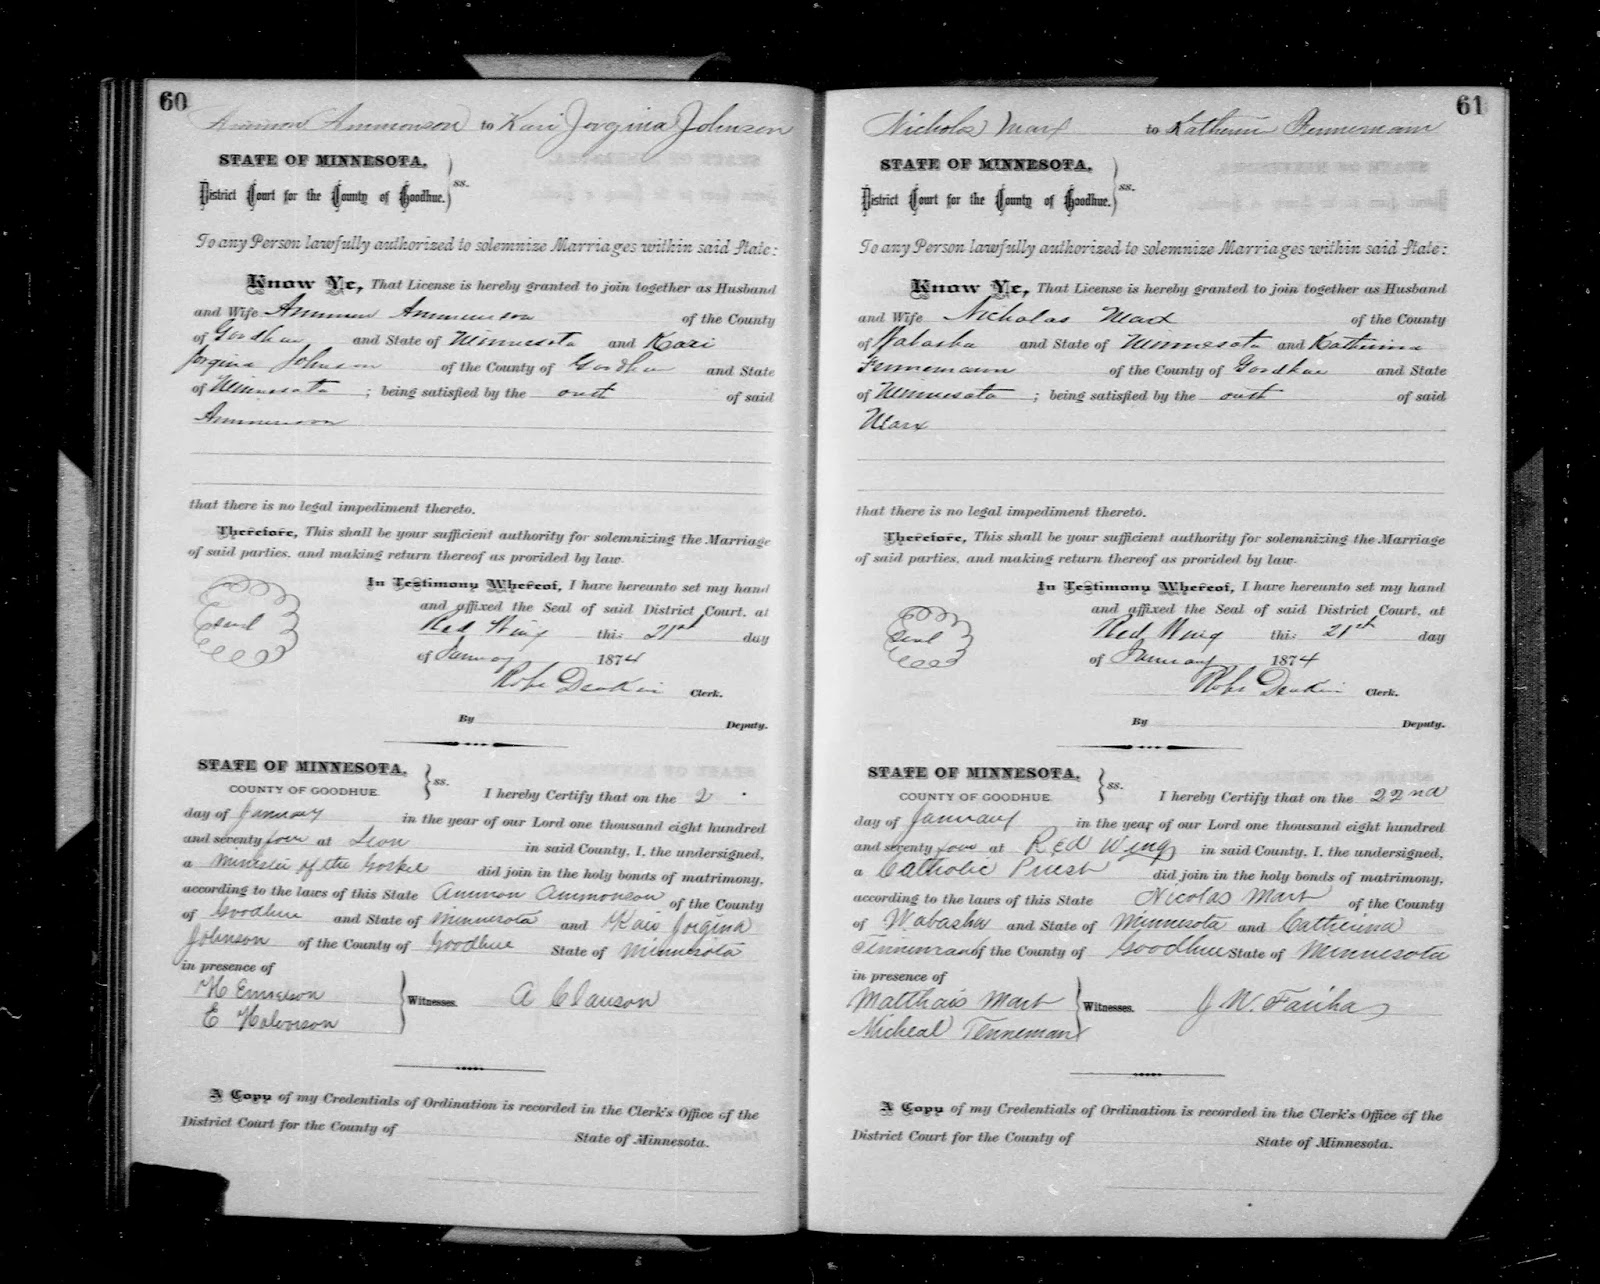 60
Ammon Ammonson to Kari Jorgina Johnson
STATE OF MINNESOTA,
District Court for the County of Goodhue. ss.
To any Person lawfully authorized to solemnize Marriages within said State:
Know Ye, That License is hereby granted to join together as Husband
and Wife Ammon Ammonson of the County
of Goodhue and State of Minnesota and Kari
Jorgina Johnson of the County of Goodhue and State
of Minnesota ; being satisfied by the oath of said
Ammonson
that there is no legal impediment thereto.
Therefore, This shall be your sufficient authority for solemnizing the Marriage
of said parties, and making return thereof as provided by law.
In Testimony Whereof, I have hereunto set my hand
and affixed the Seal of said District Court, at
Seal
Red Wing this 21st day
of January 1874
Deakin Clerk.
By Deputy.
STATE OF MINNESOTA,
COUNTY OF GOODHUE ss.
I hereby Certify that on the 2
day of January in the year of our Lord one thousand eight hundred
and seventy four at Leon in said County, I, the undersigned,
a Minister of the Gospel did join in the holy bonds of matrimony,
according to the laws of this State Ammon Ammonson of the County
of Goodhue and State of Minnesota and Kari Jorgina
Johnson of the County of Goodhue State of Minnesota
in presence of
H Emerson
E Halvorson
Witnesses. A Clauson
A Copy of my Credentials of Ordination is recorded in the Clerk's Office of the
District Court for the County of State of Minnesota.
61
Nichols Marx to Katherin Fennemann
STATE OF MINNESOTA,
District Court for the County of Goodhue. ss.
To any Person lawfully authorized to solemnize Marriages within said State:
Know Ye, That License is hereby granted to join together as Husband
and Wife Nicholas Marx of the County
of Wabasha and State of Minnesota and Katherina
Fennemann of the County of Goodhue and State
of Minnesota ; being satisfied by the oath of said
Marx
that there is no legal impediment thereto.
Therefore, This shall be your sufficient authority for solemnizing the Marriage
of said parties, and making return thereof as provided by law.
In Testimony Whereof, I have hereunto set my hand
and affixed the Seal of said District Court, at
Seal
Red Wing this 21st day
of January 1874
Deakin Clerk.
By Deputy.
STATE OF MINNESOTA,
COUNTY OF GOODHUE ss.
I hereby Certify that on the 22nd
day of January in the year of our Lord one thousand eight hundred
and seventy four at Red Wing in said County, I, the undersigned,
a Catholic Priest did join in the holy bonds of matrimony,
according to the laws of this State Nicolas Mart of the County
of Wabasha and State of Minnesota and Catherina
of the County of Goodhue State of Minnesota
in presence of
Matthais Mart
Micheal Tenneman
Witnesses. J. W.
A Copy of my Credentials of Ordination is recorded in the Clerk's Office of the
District Court for the County of State of Minnesota.